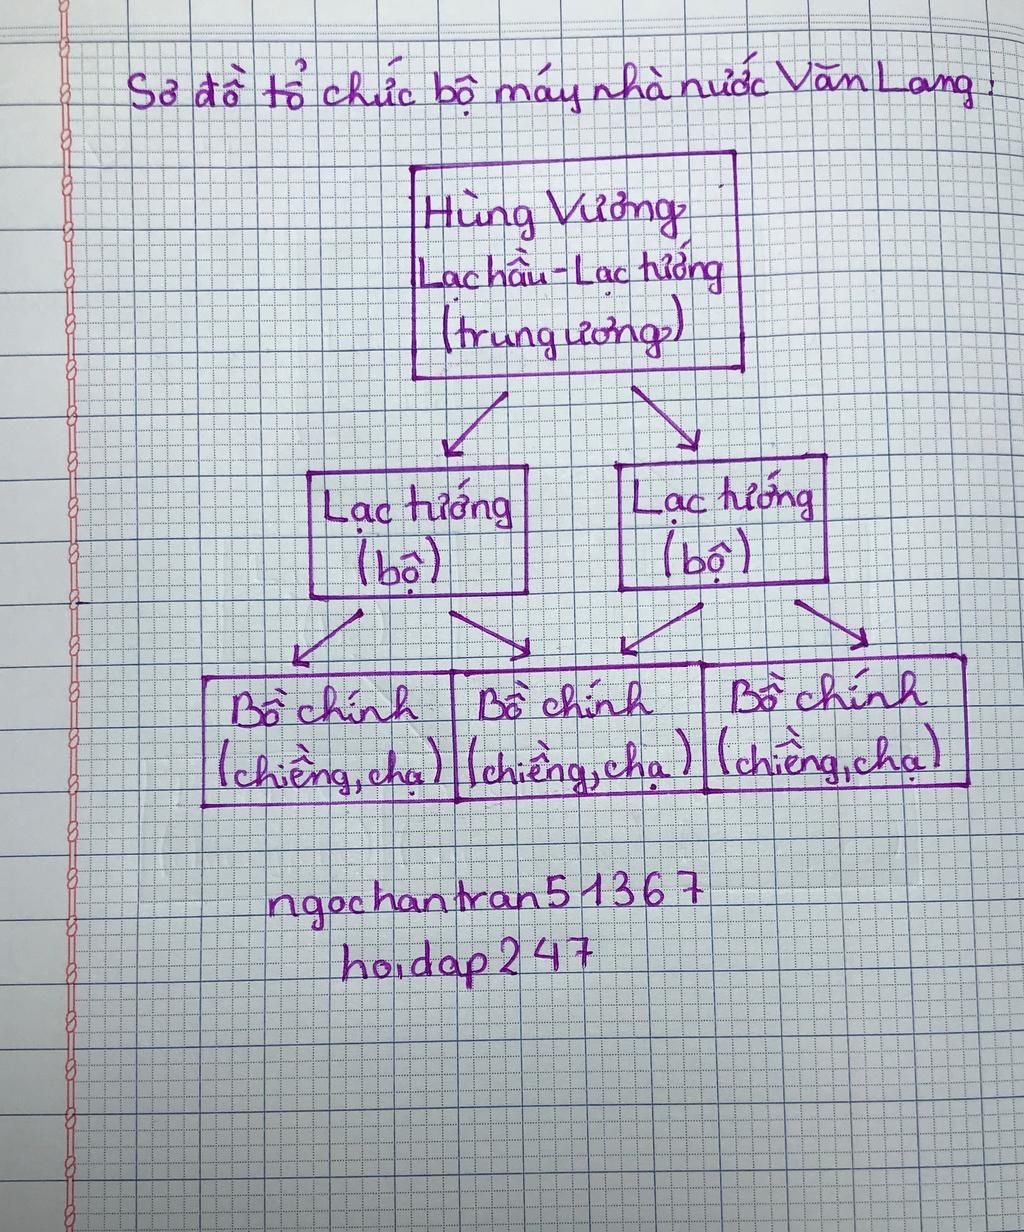 Sơ đồ tổ chức bộ máy nhà nước Văn Lang:
Hùng Vương
Lạc hầu - Lạc tướng
(trung ương)
Lạc tướng
(bộ)
Lạc tướng
(bộ)
Bồ chính
(chiềng, chạ)
Bồ chính
(chiềng, chạ)
Bồ chính
(chiềng, chạ)
ngochantran51367
hoidap247